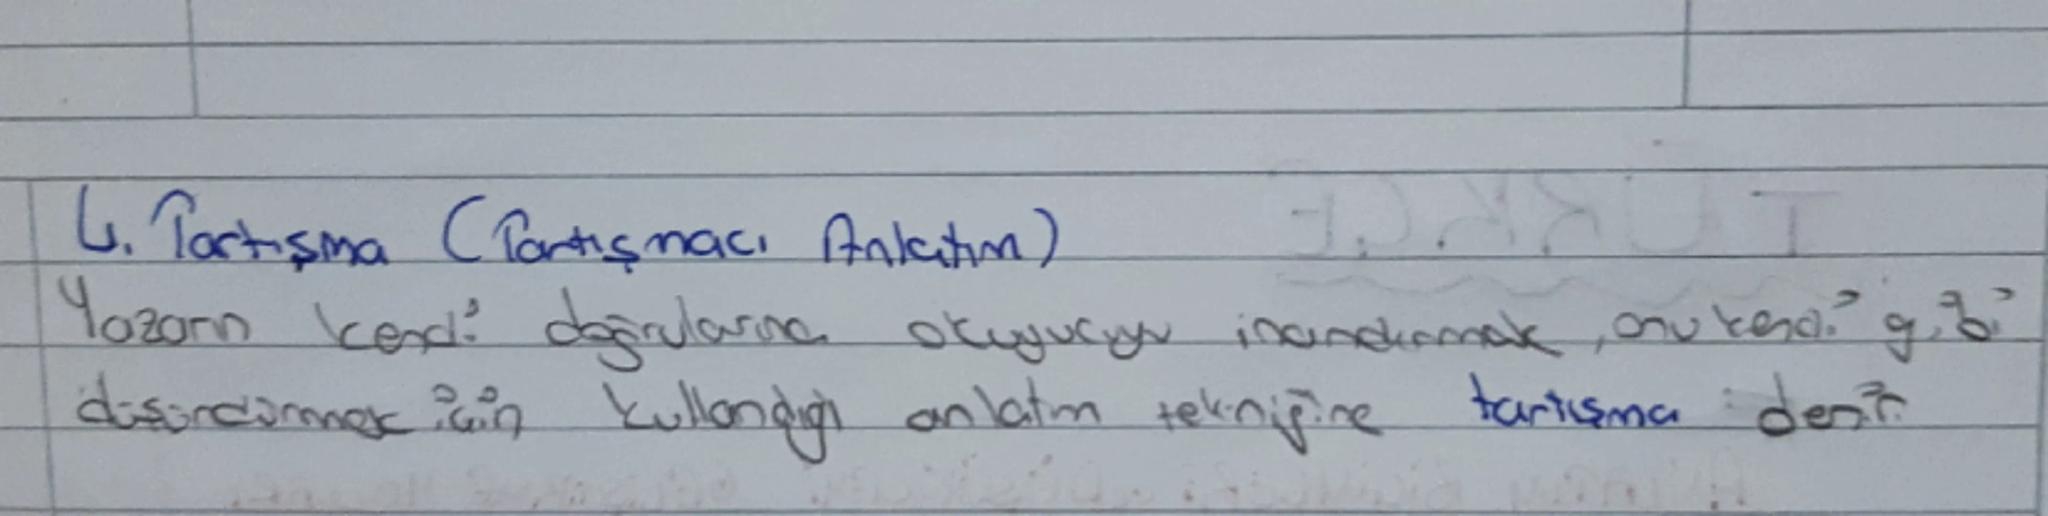 4. Tartışma (Tartışmacı Anlatım)
Yazarın kendi doğrularına okuyucuyu inandırmak, onu kendi gibi
düşündürmek için kullandığı anlatım tekniğine tartışma denir.